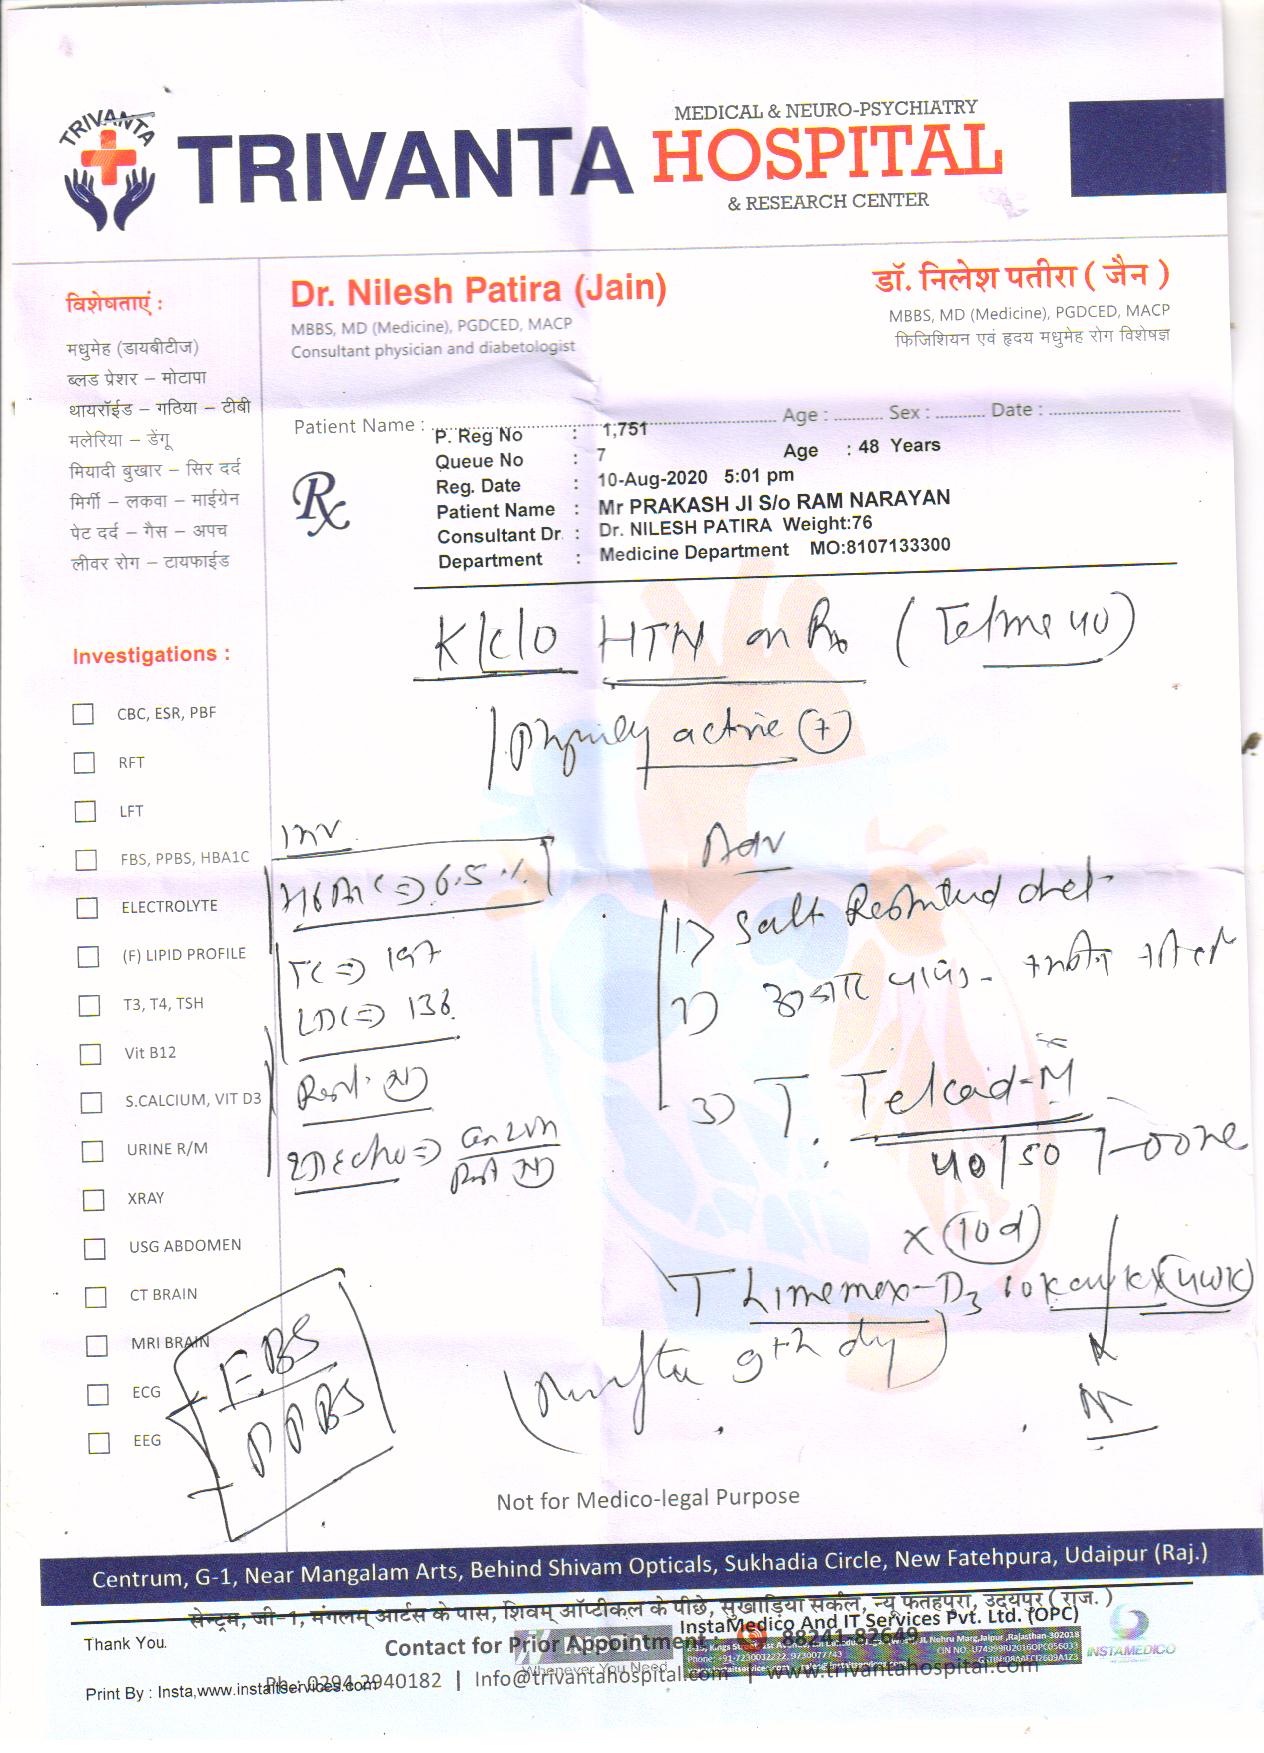 TRIVANTA
TRIVANTA
MEDICAL & NEURO-PSYCHIATRY
HOSPITAL
& RESEARCH CENTER
Dr. Nilesh Patira (Jain)
MBBS, MD (Medicine), PGDCED, MACP
Consultant physician and diabetologist
डॉ. निलेश पतीरा ( जैन )
MBBS, MD (Medicine), PGDCED, MACP
फिजिशियन एवं हृदय मधुमेह रोग विशेषज्ञ
विशेषताएं :
मधुमेह (डायबीटीज)
ब्लड प्रेशर – मोटापा
थायरॉईड – गठिया – टीबी
मलेरिया – डेंगू
मियादी बुखार – सिर दर्द
मिर्गी – लकवा – माईग्रेन
पेट दर्द – गैस – अपच
लीवर रोग – टायफाईड
Patient Name : Age : Sex : Date :
Rx
P. Reg No : 1,751
Age : 48 Years
Queue No : 7
Reg. Date : 10-Aug-2020 5:01 pm
Patient Name : Mr PRAKASH JI S/o RAM NARAYAN
Consultant Dr. : Dr. NILESH PATIRA Weight:76
Department : Medicine Department MO:8107133300
K/c/o HTN on Rx (Telma 40)
active (+)
Investigations :
CBC, ESR, PBF
RFT
LFT
FBS, PPBS, HBA1C
ELECTROLYTE
(F) LIPID PROFILE
T3, T4, TSH
Vit B12
S.CALCIUM, VIT D3
URINE R/M
XRAY
USG ABDOMEN
CT BRAIN
MRI BRAIN
ECG
EEG
Inv
HbA1c => 6.5 %
TC => 197
LDL => 138
Rest (N)
2D Echo =>
Rest (N)
FBS
PPBS
Adv
1) Salt Restricted diet
3) T. Telcad-M
40/50 1-00
x (10d)
T Limemex-D3 (4wk)
9th day
Not for Medico-legal Purpose
Centrum, G-1, Near Mangalam Arts, Behind Shivam Opticals, Sukhadia Circle, New Fatehpura, Udaipur (Raj.)
सेन्ट्रम, जी-1, मंगलम् आर्टस के पास, शिवम् ऑप्टीकल के पीछे, सुखाड़िया सर्कल, न्यू फतहपुरा, उदयपुर ( राज. )
InstaMedico And IT Services Pvt. Ltd. (OPC)
Thank You.
Contact for Prior Appointment : 88241-82649
Whenever You Need
INSTAMEDICO
Ph.: 0294-2940182 | Info@trivantahospital.com | www.trivantahospital.com
Print By : Insta,www.instaitservices.com